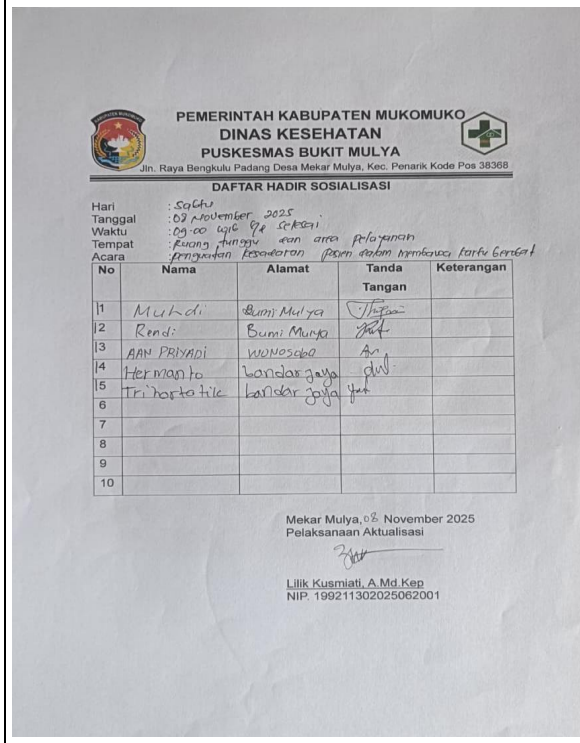 PEMERINTAH KABUPATEN MUKOMUKO
DINAS KESEHATAN
PUSKESMAS BUKIT MULYA
Jln. Raya Bengkulu Padang Desa Mekar Mulya, Kec. Penarik Kode Pos 38368
DAFTAR HADIR SOSIALISASI
Hari : Sabtu
Tanggal : 08 November 2025
Waktu : 09.00 WIB selesai
Tempat : Ruang tunggu dan area pelayanan
Acara : penguatan kesadaran pasien dalam membawa kartu berobat
No Nama Alamat Tanda Tangan Keterangan
1 Muhdi Bumi Mulya
2 Rendi Bumi Mulya
3 AAN PRIYADI WONOSobo
4 Hermanto bandar jaya
5 bandar jaya
6
7
8
9
10
Mekar Mulya, 08 November 2025
Pelaksanaan Aktualisasi
Lilik Kusmiati, A.Md.Kep
NIP. 199211302025062001